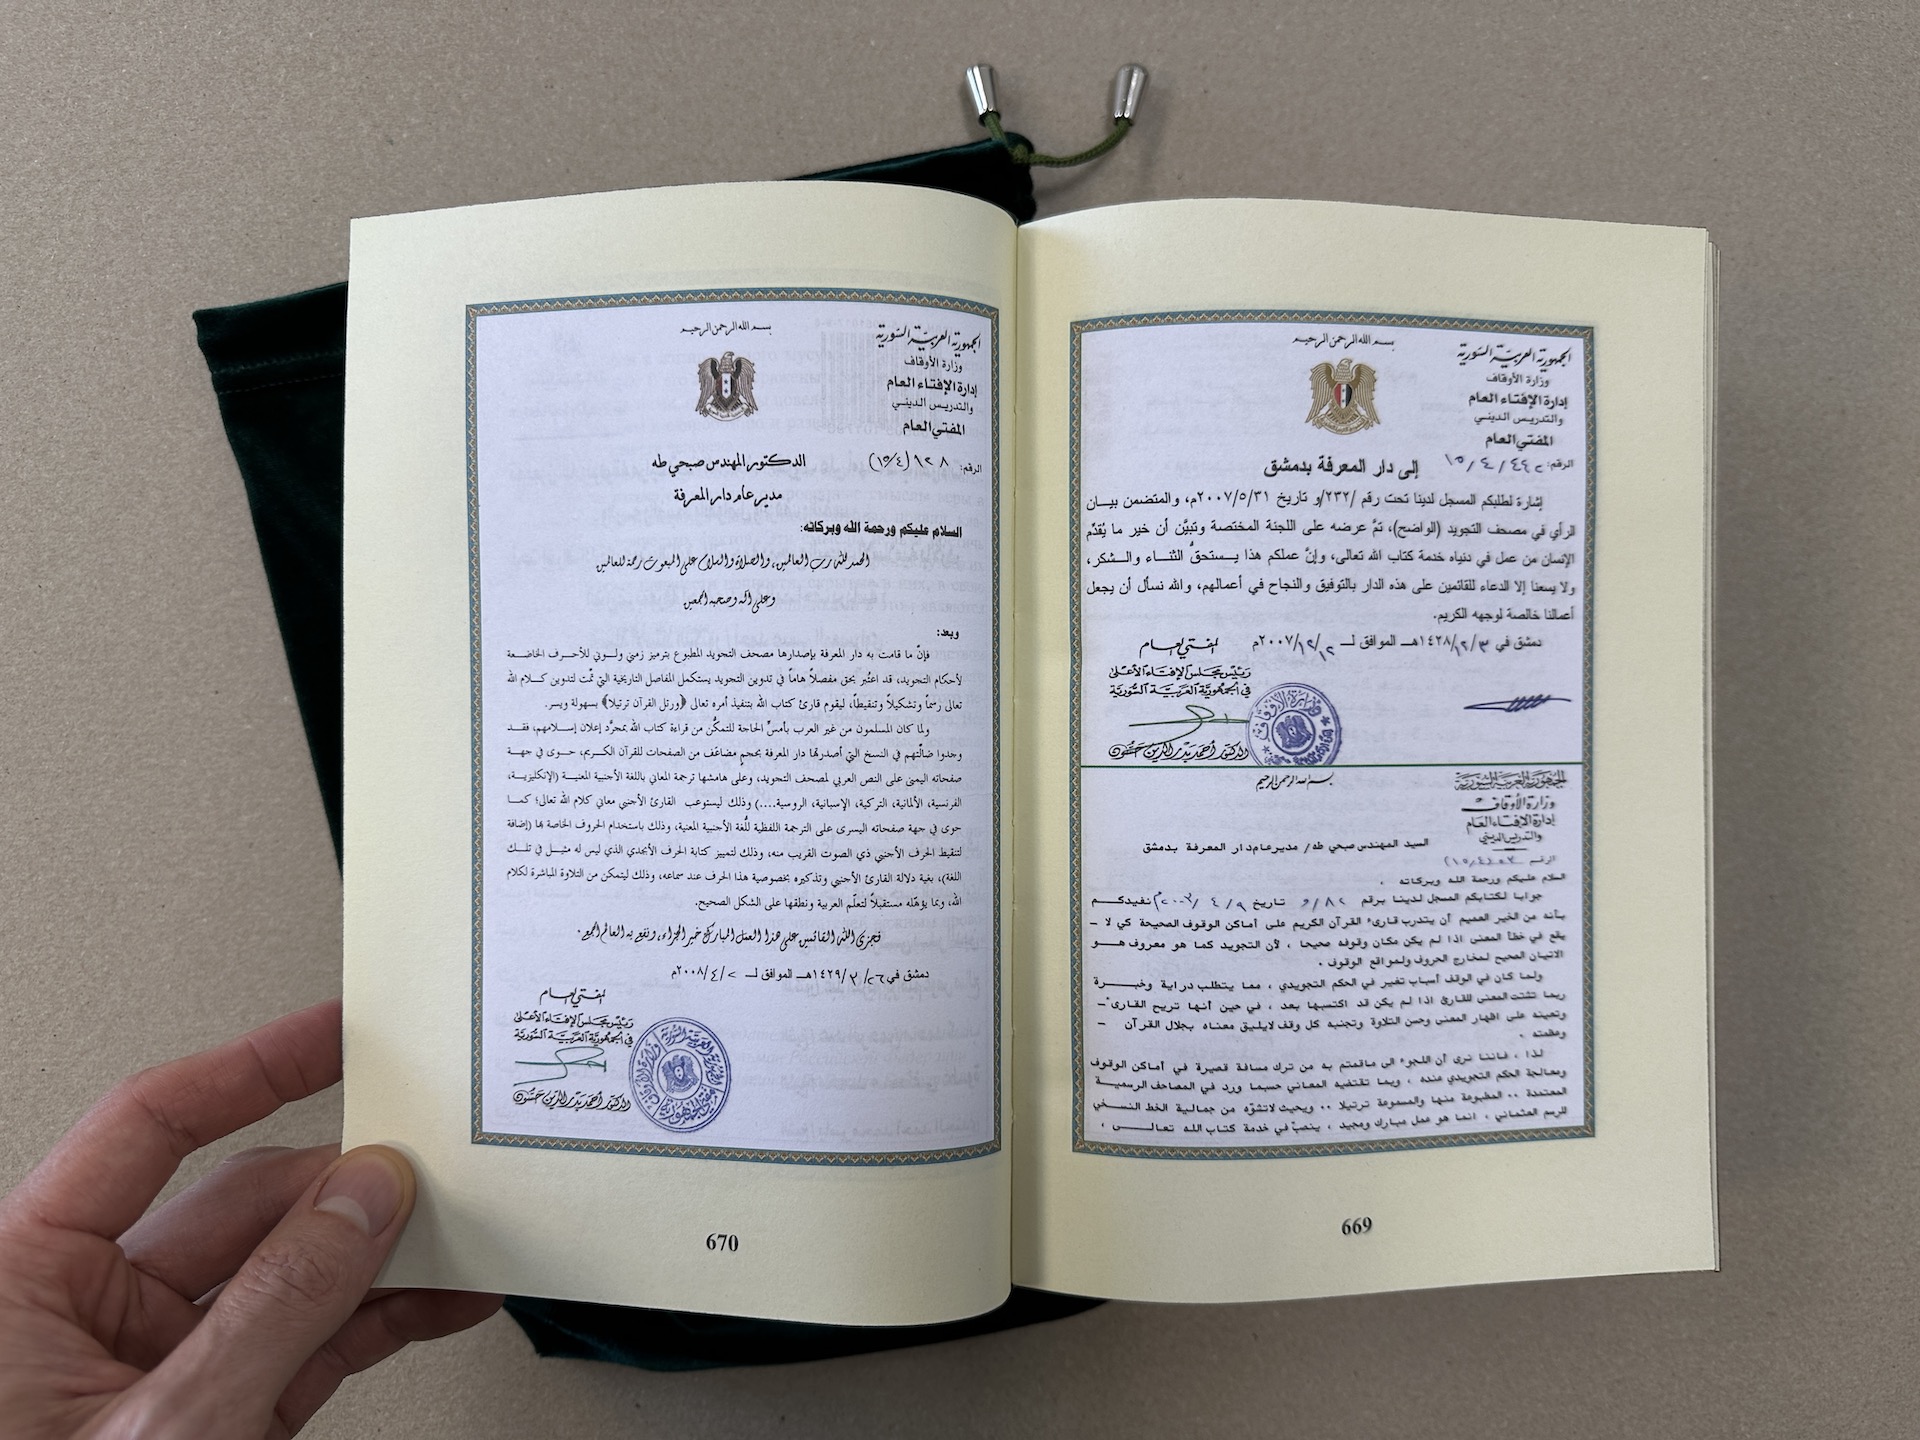 بسم الله الرحمن الرحيم
الجمهورية العربية السورية
وزارة الأوقاف
إدارة الإفتاء العام
والتدريس الديني
المفتي العام
الرقم: ٤٤٢ / ٤ / ١٥
إلى دار المعرفة بدمشق
إشارة لطلبكم المسجل لدينا تحت رقم /٢٣٢/و تاريخ ٢٠٠٧/٥/٣١م، والمتضمن بيان
الرأي في مصحف التجويد (الواضح)، تمَّ عرضه على اللجنة المختصة وتبيَّن أن خير ما يُقدِّم
الإنسان من عمل في دنياه خدمة كتاب الله تعالى، وإنَّ عملكم هذا يستحقُّ الثناء والشكر،
ولا يسعنا إلا الدعاء للقائمين على هذه الدار بالتوفيق والنجاح في أعمالهم، والله نسأل أن يجعل
أعمالنا خالصة لوجهه الكريم.
دمشق في ١٤٢٨/١٢/٣هـ الموافق لـ ٢٠٠٧/١٢/١٢م
المفتي العام
رئيس مجلس الإفتاء الأعلى
في الجمهورية العربية السورية
الدكتور أحمد بدر الدين حسون
بسم الله الرحمن الرحيم
الجمهورية العربية السورية
وزارة الأوقاف
إدارة الإفتاء العام
والتدريس الديني
الرقم
السيد المهندس صبحي طه/ مديرعام دار المعرفة بدمشق
السلام عليكم ورحمة الله وبركاته .
جوابا لكتابكم المسجل لدينا برقم ٨٢/و تاريخ ٩/ ٤/ ٢٠٠٣م نفيدكم
بأنه من الخير العميم أن يتدرب قارىء القرآن الكريم على أماكن الوقوف الصحيحة كي لا –
يقع في خطأ المعنى اذا لم يكن مكان وقوفه صحيحا ، لأن التجويد كما هو معروف هو
الاتيان الصحيح لمخارج الحروف ولمواقع الوقوف .
ولما كان في الوقف أسباب تغير في الحكم التجويدي ، مما يتطلب دراية وخبرة
ربما تشتت المعنى للقارئ اذا لم يكن قد اكتسبها بعد ، في حين أنها تريح القارىء –
وتعينه على اظهار المعنى وحسن التلاوة وتجنبه كل وقف لايليق معناه بجلال القرآن –
وعظمته .
لذا ، فاننا نرى أن اللجوء الى ماقمتم به من ترك مسافة قصيرة في أماكن الوقوف
ومعالجة الحكم التجويدي عنده ، وبما تقتضيه المعاني حسبما ورد في المصاحف الرسمية
المعتمدة .. المطبوعة منها والمسموعة ترتيلا .. وبحيث لاتشوّه من جمالية الخط النسخي
للرسم العثماني ، انما هو عمل مبارك ومجيد ، ينصبّ في خدمة كتاب الله تعالى ،
669
بسم الله الرحمن الرحيم
الجمهورية العربية السورية
وزارة الأوقاف
إدارة الإفتاء العام
والتدريس الديني
المفتي العام
الرقم: ١٢٨ (١٥/٤)
الدكتور المهندس صبحي طه
مدير عام دار المعرفة
السلام عليكم ورحمة الله وبركاته:
الحمد لله رب العالمين، والصلاة والسلام على المبعوث رحمة للعالمين
وعلى آله وصحبه أجمعين
وبعد:
فإنّ ما قامت به دار المعرفة بإصدارها مصحف التجويد المطبوع بترميز زمني ولوني للأحرف الخاضعة
لأحكام التجويد، قد اعتُبر بحق مفصلاً هاماً في تدوين التجويد يستكمل المفاصل التاريخية التي تمّت لتدوين كلام الله
تعالى رسماً وتشكيلاً وتنقيطاً، ليقوم قارئ كتاب الله بتنفيذ أمره تعالى ((ورتل القرآن ترتيلا)) بسهولة ويسر.
ولما كان المسلمون من غير العرب بأمسِّ الحاجة للتمكُّن من قراءة كتاب الله بمجرَّد إعلان إسلامهم، فقد
وجدوا ضالّتهم في النسخ التي أصدرتها دار المعرفة بحجم مضاعَف من الصفحات للقرآن الكريم، حوى في جهة
صفحاته اليمنى على النص العربي لمصحف التجويد، وعلى هامشها ترجمة المعاني باللغة الأجنبية المعنية (الإنكليزية،
الفرنسية، الألمانية، التركية، الإسبانية، الروسية....) وذلك ليستوعب القارئ الأجنبي معاني كلام الله تعالى؛ كما
حوى في جهة صفحاته اليسرى على الترجمة اللفظية للُّغة الأجنبية المعنية، وذلك باستخدام الحروف الخاصة بها (إضافة
لتنقيط الحرف الأجنبي ذي الصوت القريب منه، وذلك لتمييز كتابة الحرف الأبجدي الذي ليس له مثيل في تلك
اللغة)، بغية دلالة القارئ الأجنبي وتذكيره بخصوصية هذا الحرف عند سماعه، وذلك ليتمكن من التلاوة المباشرة لكلام
الله، وبما يؤهّله مستقبلاً لتعلّم العربية ونطقها على الشكل الصحيح.
فجزى الله القائمين على هذا العمل المبارك خير الجزاء، ونفع به العالم أجمع.
دمشق في ٢٦/ ٣/ ١٤٢٩هـ الموافق لـ ٢/ ٤/ ٢٠٠٨م
المفتي العام
رئيس مجلس الإفتاء الأعلى
في الجمهورية العربية السورية
الدكتور أحمد بدر الدين حسون
670